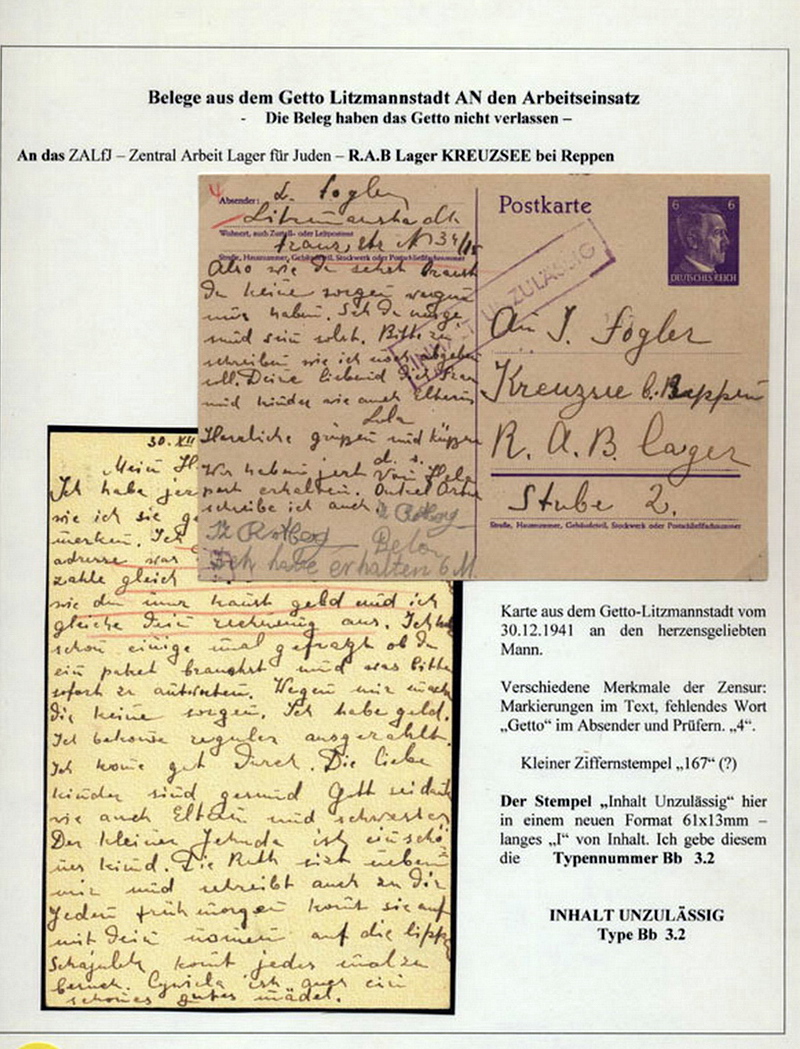 Belege aus dem Getto Litzmannstadt AN den Arbeitseinsatz
- Die Beleg haben das Getto nicht verlassen –
An das ZALfJ – Zentral Arbeit Lager für Juden – R.A.B Lager KREUZSEE bei Reppen
Absender: L. Fogler
Litzmannstadt
Wohnort, auch Zustell- oder Leitpostamt
Franz str N 34/15
Straße, Hausnummer, Gebäudeteil, Stockwerk oder Postschließfachnummer
Also wie du siehst brauchst
du keine sorgen wegen
mir haben.
Bitte zu
schreiben wie ich noch
soll. Deine liebend dich Frau
und kinder wie auch Eltern
Lola
Herzliche grüssen und küssen
d. s.
Wir haben jetzt von Hela
post erhalten. Onkel
schreibe ich auch.
Rotberg
Rotberg Bela
Ich habe erhalten 6 M
Postkarte
6 6
DEUTSCHES REICH
INHALT UNZULÄSSIG
An J. Fogler
Kreuzsee b. Reppen
R. A. B. Lager
Stube 2.
Straße, Hausnummer, Gebäudeteil, Stockwerk oder Postschließfachnummer
30. XII
Mein H
Ich habe je
wie ich sie g
merken. Ich
adresse war
zahle gleich
wie du mir kaust geld und ich
gleiche dein rechnung aus. Ich
schon einige mal gefragt ob du
ein paket brauchst und was bitte
sofort zu antworten. Wegen mir mach
dir keine sorgen. Ich habe geld.
Ich bekome regular ausgezahlt.
Ich kome gut durch. Die liebe
kinder sind gesund Gott sei dank
wie auch Eltern und schwester
Der kleiner Jehuda ist ein schö
nes kind. Die Ruth sizt neben
mir und schreibt auch zu dir
Jeden früh morgen komt sie auf
mit dein namen auf die lippe
komt jedes mal zu
besuch. ist ein
schönes gutes mädel.
Karte aus dem Getto-Litzmannstadt vom
30.12.1941 an den herzensgeliebten
Mann.
Verschiedene Merkmale der Zensur:
Markierungen im Text, fehlendes Wort
„Getto“ im Absender und Prüfern. „4“.
Kleiner Ziffernstempel „167“ (?)
Der Stempel „Inhalt Unzulässig“ hier
in einem neuen Format 61x13mm –
langes „I“ von Inhalt. Ich gebe diesem
die Typennummer Bb 3.2
INHALT UNZULÄSSIG
Type Bb 3.2